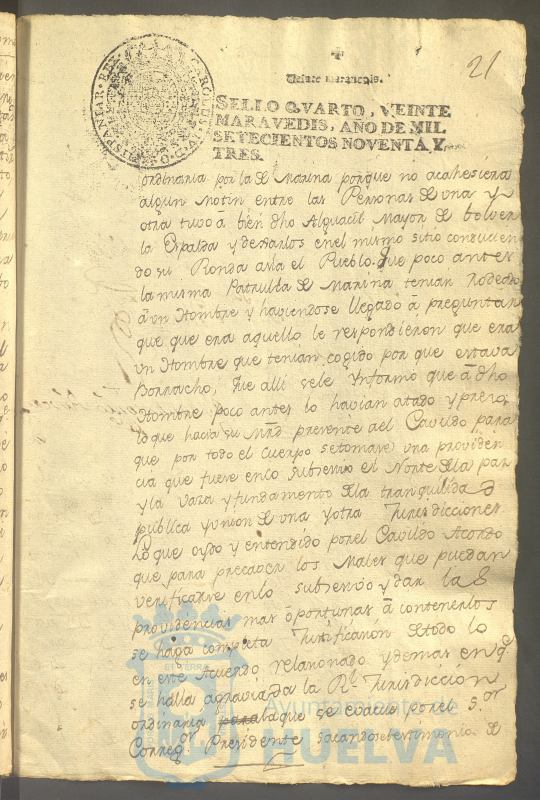 21
Veinte maravedis.
SELLO QVARTO, VEINTE
MARAVEDIS, AÑO DE MIL
SETECIENTOS NOVENTA Y
TRES.
HISPANIAR. REX CAROLUS
ordinaria por la de Marina porque no acahesiera
algun Motin entre las Personas de una y
otra tuvo á bien dho Alguacil Mayor de bolver
la Espalda y dexarlos en el mismo sitio conducien
do su Ronda acia el Pueblo. Que poco antes
la misma Patrulla de Marina tenian Rodeado
á un Hombre y haviendose llegado á preguntar
que que era aquello le respondieron que era
un Hombre que tenian cogido por que estava
Borracho, que alli sele Ynformó que á dho
Hombre poco antes lo havian atado y preso,
lo que hacia su Mrd presente ael Cavildo para
que por todo el Cuerpo se tomase una providen
cia que fuese en lo subsesivo el Norte de la paz
y la vara y fundamento de la tranquilidad
publica y union de una y otra Jurisdicciones
Lo que oydo y entendido por el Cavildo Acordó
que para precaver los Males que puedan
verificarse en lo subsesivo y dar las
providencias mas oportunas á contenerlos
se haga completa Justificazión de todo lo
en este Acuerdo relacionado y demas en q.
se halla agraviada la Rl. Jurisdiccion
ordinaria para la que se evacue por el S.or
Correg.or Presidente sacandose testimonio de
ET TERRE
Ayuntamiento de
HUELVA